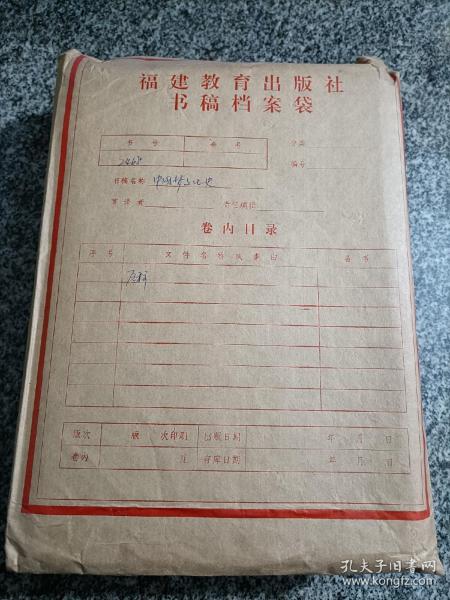 福建教育出版社
书稿档案袋
书号 命书 分类
编号
书稿名称
著译者 责任编辑
卷内目录
序号 文件名称或事由 备书
原稿
版次 版 次印刷 出版日期 年 月 日
卷内 页 存库日期 年 月 日
孔夫子旧书网
www.kongfz.com